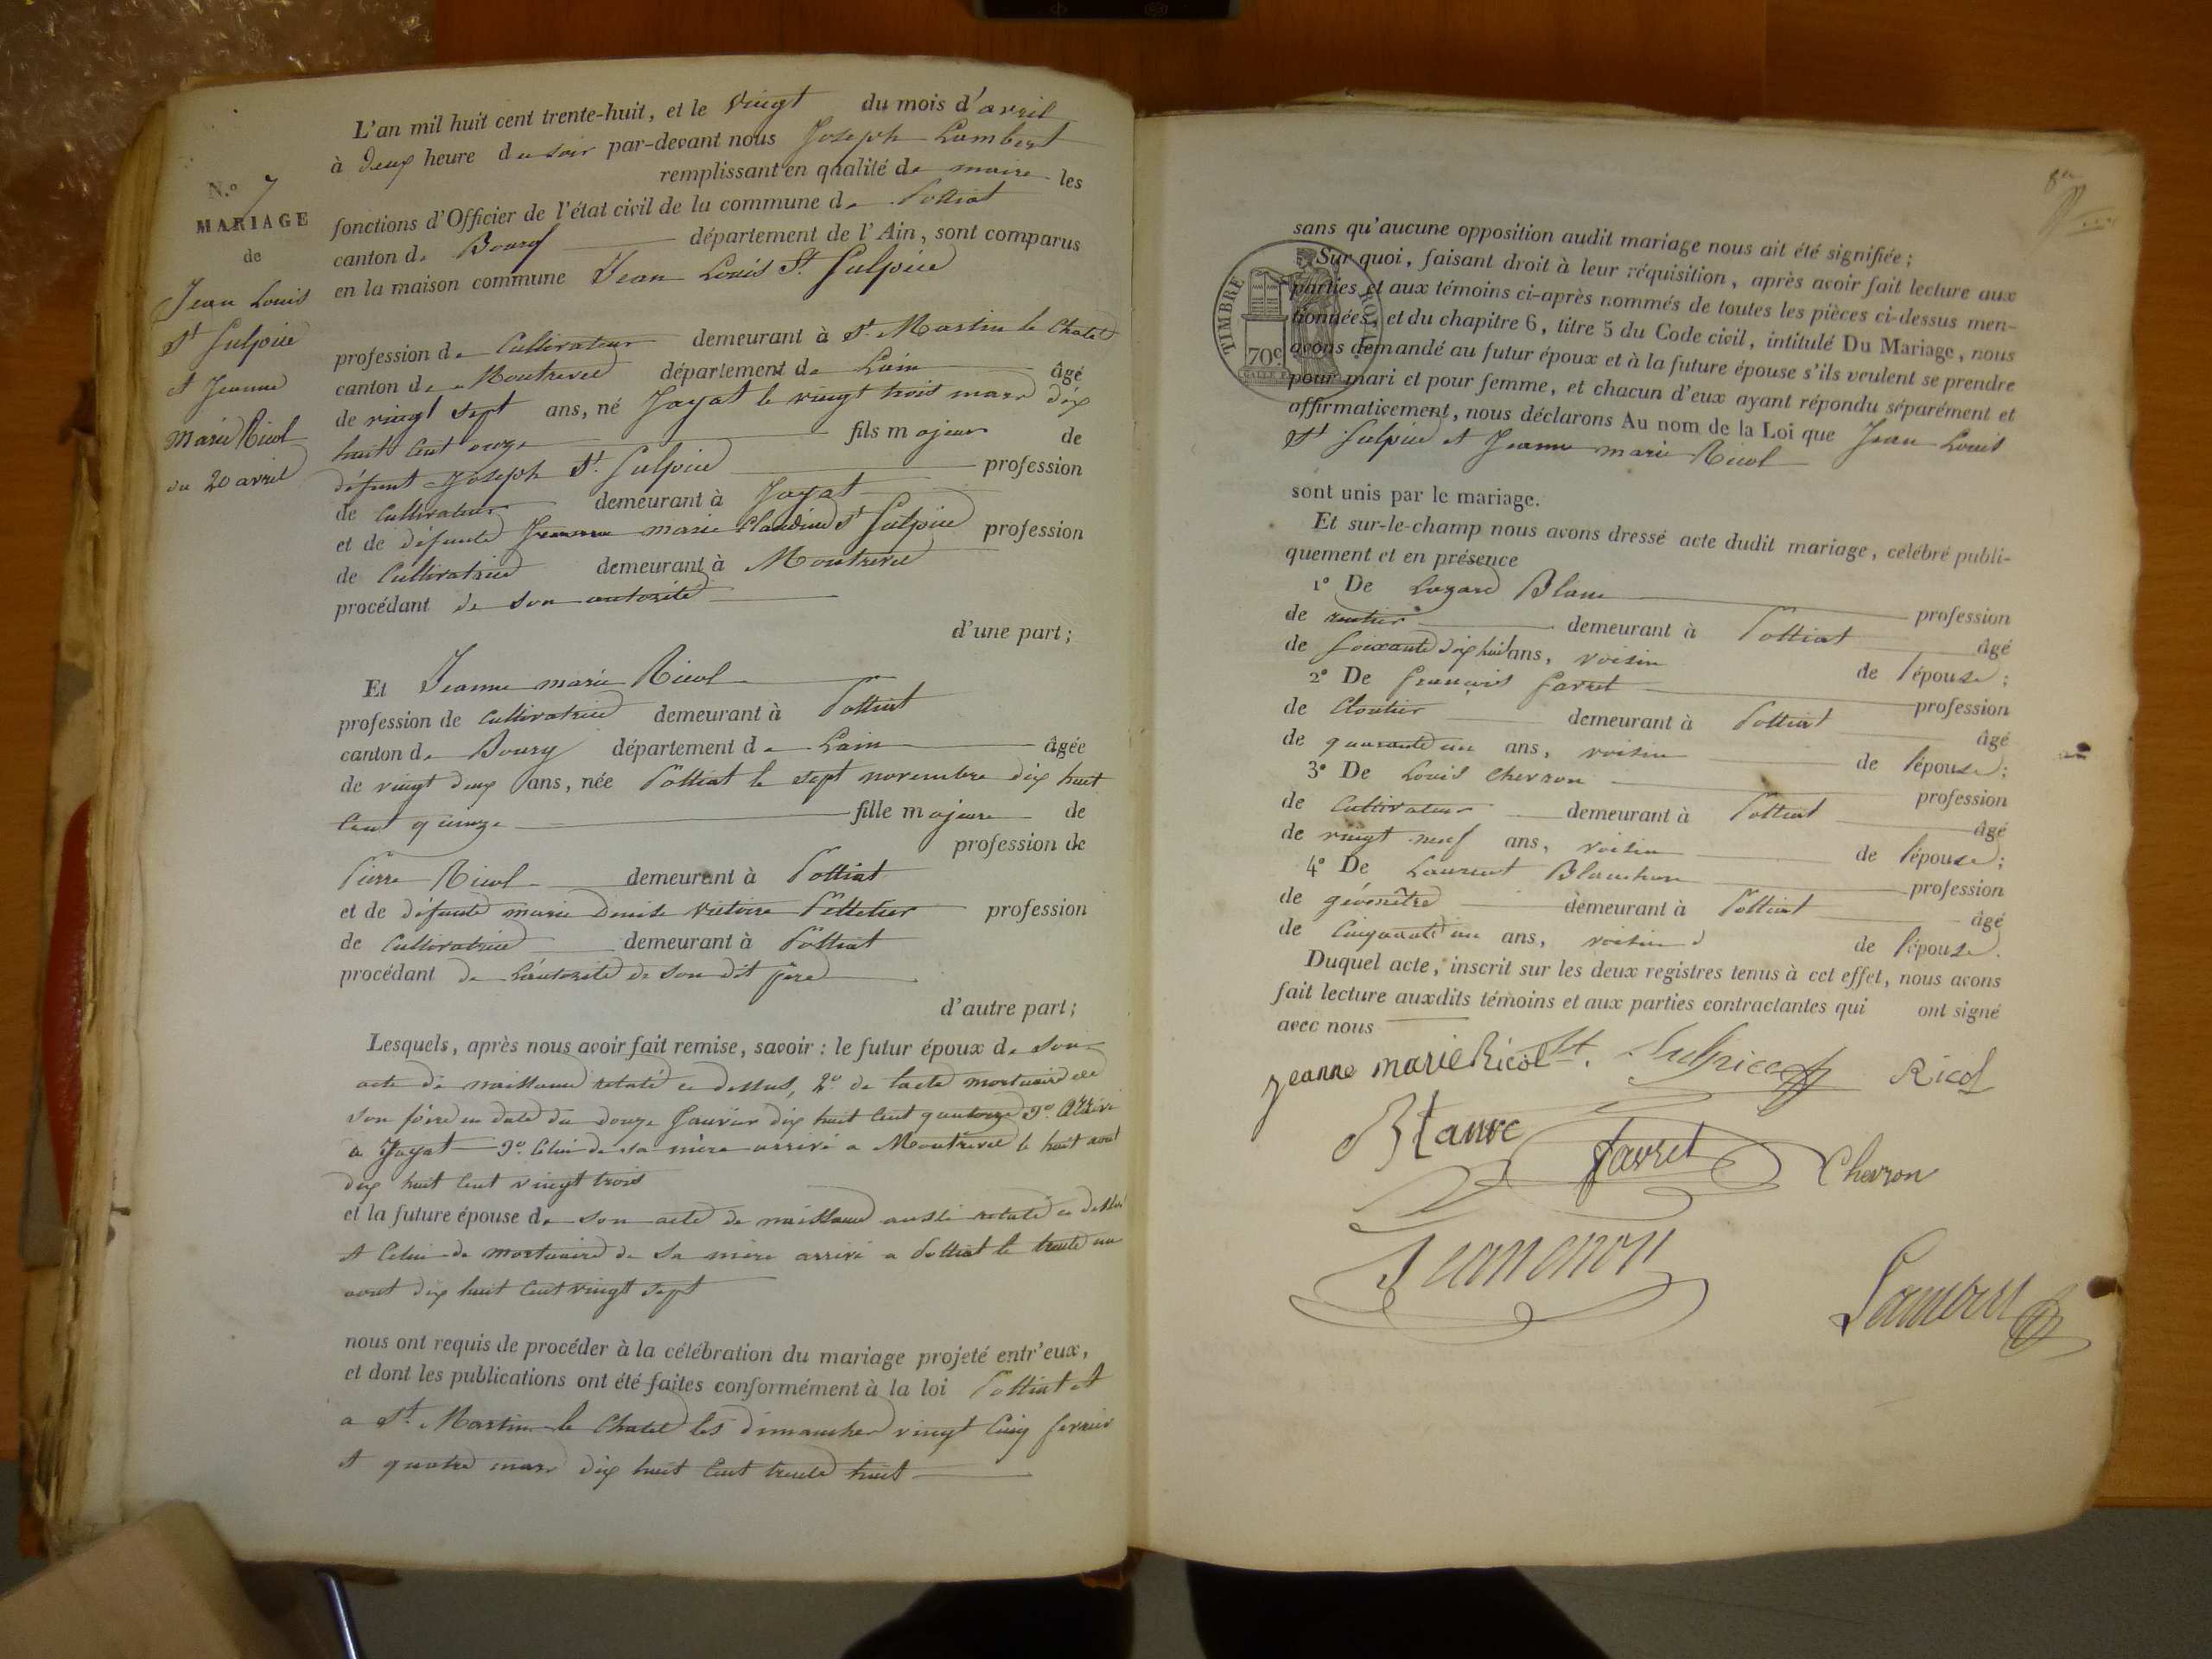 L'an mil huit cent trente-huit, et le vingt du mois d'avril
à deux heure du soir par-devant nous Joseph Lambert
remplissant en qualité de maire les
fonctions d'Officier de l'état civil de la commune de Polliat
canton de Bourg département de l'Ain, sont comparus
en la maison commune Jean Louis St. Sulpice
profession de Cultivateur demeurant à St. Martin le Chatel
canton de Montrevel département de Lain âgé
de vingt sept ans, né Jayat le vingt trois mars dix
huit cent onze fils majeur de
défunt Joseph St. Sulpice profession
de Cultivateur demeurant à Jayat
et de défunte Jeanne marie Claudine St Sulpice profession
de Cultivatrice demeurant à Montrevel
procédant de son autorité
d'une part;
N.o 7
MARIAGE
de
Jean Louis
St Sulpice
et Jeanne
Marie Ricol
du 20 avril
Et Jeanne marie Ricol
profession de Cultivatrice demeurant à Polliat
canton de Bourg département de Lain âgée
de vingt deux ans, née Polliat le sept novembre dix huit
Cent quinze fille majeure de
profession de
Pierre Ricol demeurant à Polliat
et de défunte marie Denise victoire Pelletier profession
de Cultivatrice demeurant à Polliat
procédant de Lautorité de son dit père
d'autre part;
Lesquels, après nous avoir fait remise, savoir: le futur époux de son
acte de naissance relaté ci dessus, 2.o de lacte mortuaire de
son père en date du douze Janvier dix huit Cent quatorze
a Jayat 3.o Celui de sa mère arrivé a Montrevel le huit aout
dix huit Cent vingt trois
et la future épouse de son acte de naissance aussi relaté ci dessus
et Celui de mortuaire de sa mère arrivé a Polliat le trente un
aout dix huit Cent vingt sept
nous ont requis de procéder à la célébration du mariage projeté entr'eux,
et dont les publications ont été faites conformément à la loi Polliat et
a St. Martin le Chatel les dimanches vingt Cinq fevrier
et quatre mars dix huit Cent trente huit
8e
TIMBRE ROYAL
70c
sans qu'aucune opposition audit mariage nous ait été signifiée;
Sur quoi, faisant droit à leur réquisition, après avoir fait lecture aux
parties et aux témoins ci-après nommés de toutes les pièces ci-dessus men-
tionnées, et du chapitre 6, titre 5 du Code civil, intitulé Du Mariage, nous
avons demandé au futur époux et à la future épouse s'ils veulent se prendre
pour mari et pour femme, et chacun d'eux ayant répondu séparément et
affirmativement, nous déclarons Au nom de la Loi que Jean Louis
St Sulpice et Jeanne marie Ricol
sont unis par le mariage.
Et sur-le-champ nous avons dressé acte dudit mariage, célébré publi-
quement et en présence
1o De Lazare Blanc profession
de rentier demeurant à Polliat âgé
de soixante dix huit ans, voisin de lépouse;
2o De françois favret profession
de Cloutier demeurant à Polliat âgé
de quarante un ans, voisin de lépouse;
3o De Louis Chevron profession
de Cultivateur demeurant à Polliat âgé
de vingt neuf ans, voisin de lépouse;
4o De Laurent profession
de géomêtre demeurant à Polliat âgé
de Cinquante un ans, voisin de lépouse.
Duquel acte, inscrit sur les deux registres tenus à cet effet, nous avons
fait lecture auxdits témoins et aux parties contractantes qui ont signé
avec nous
jeanne marie Ricol St. Sulpice Ricol
Blanc favret Chevron
Lambert